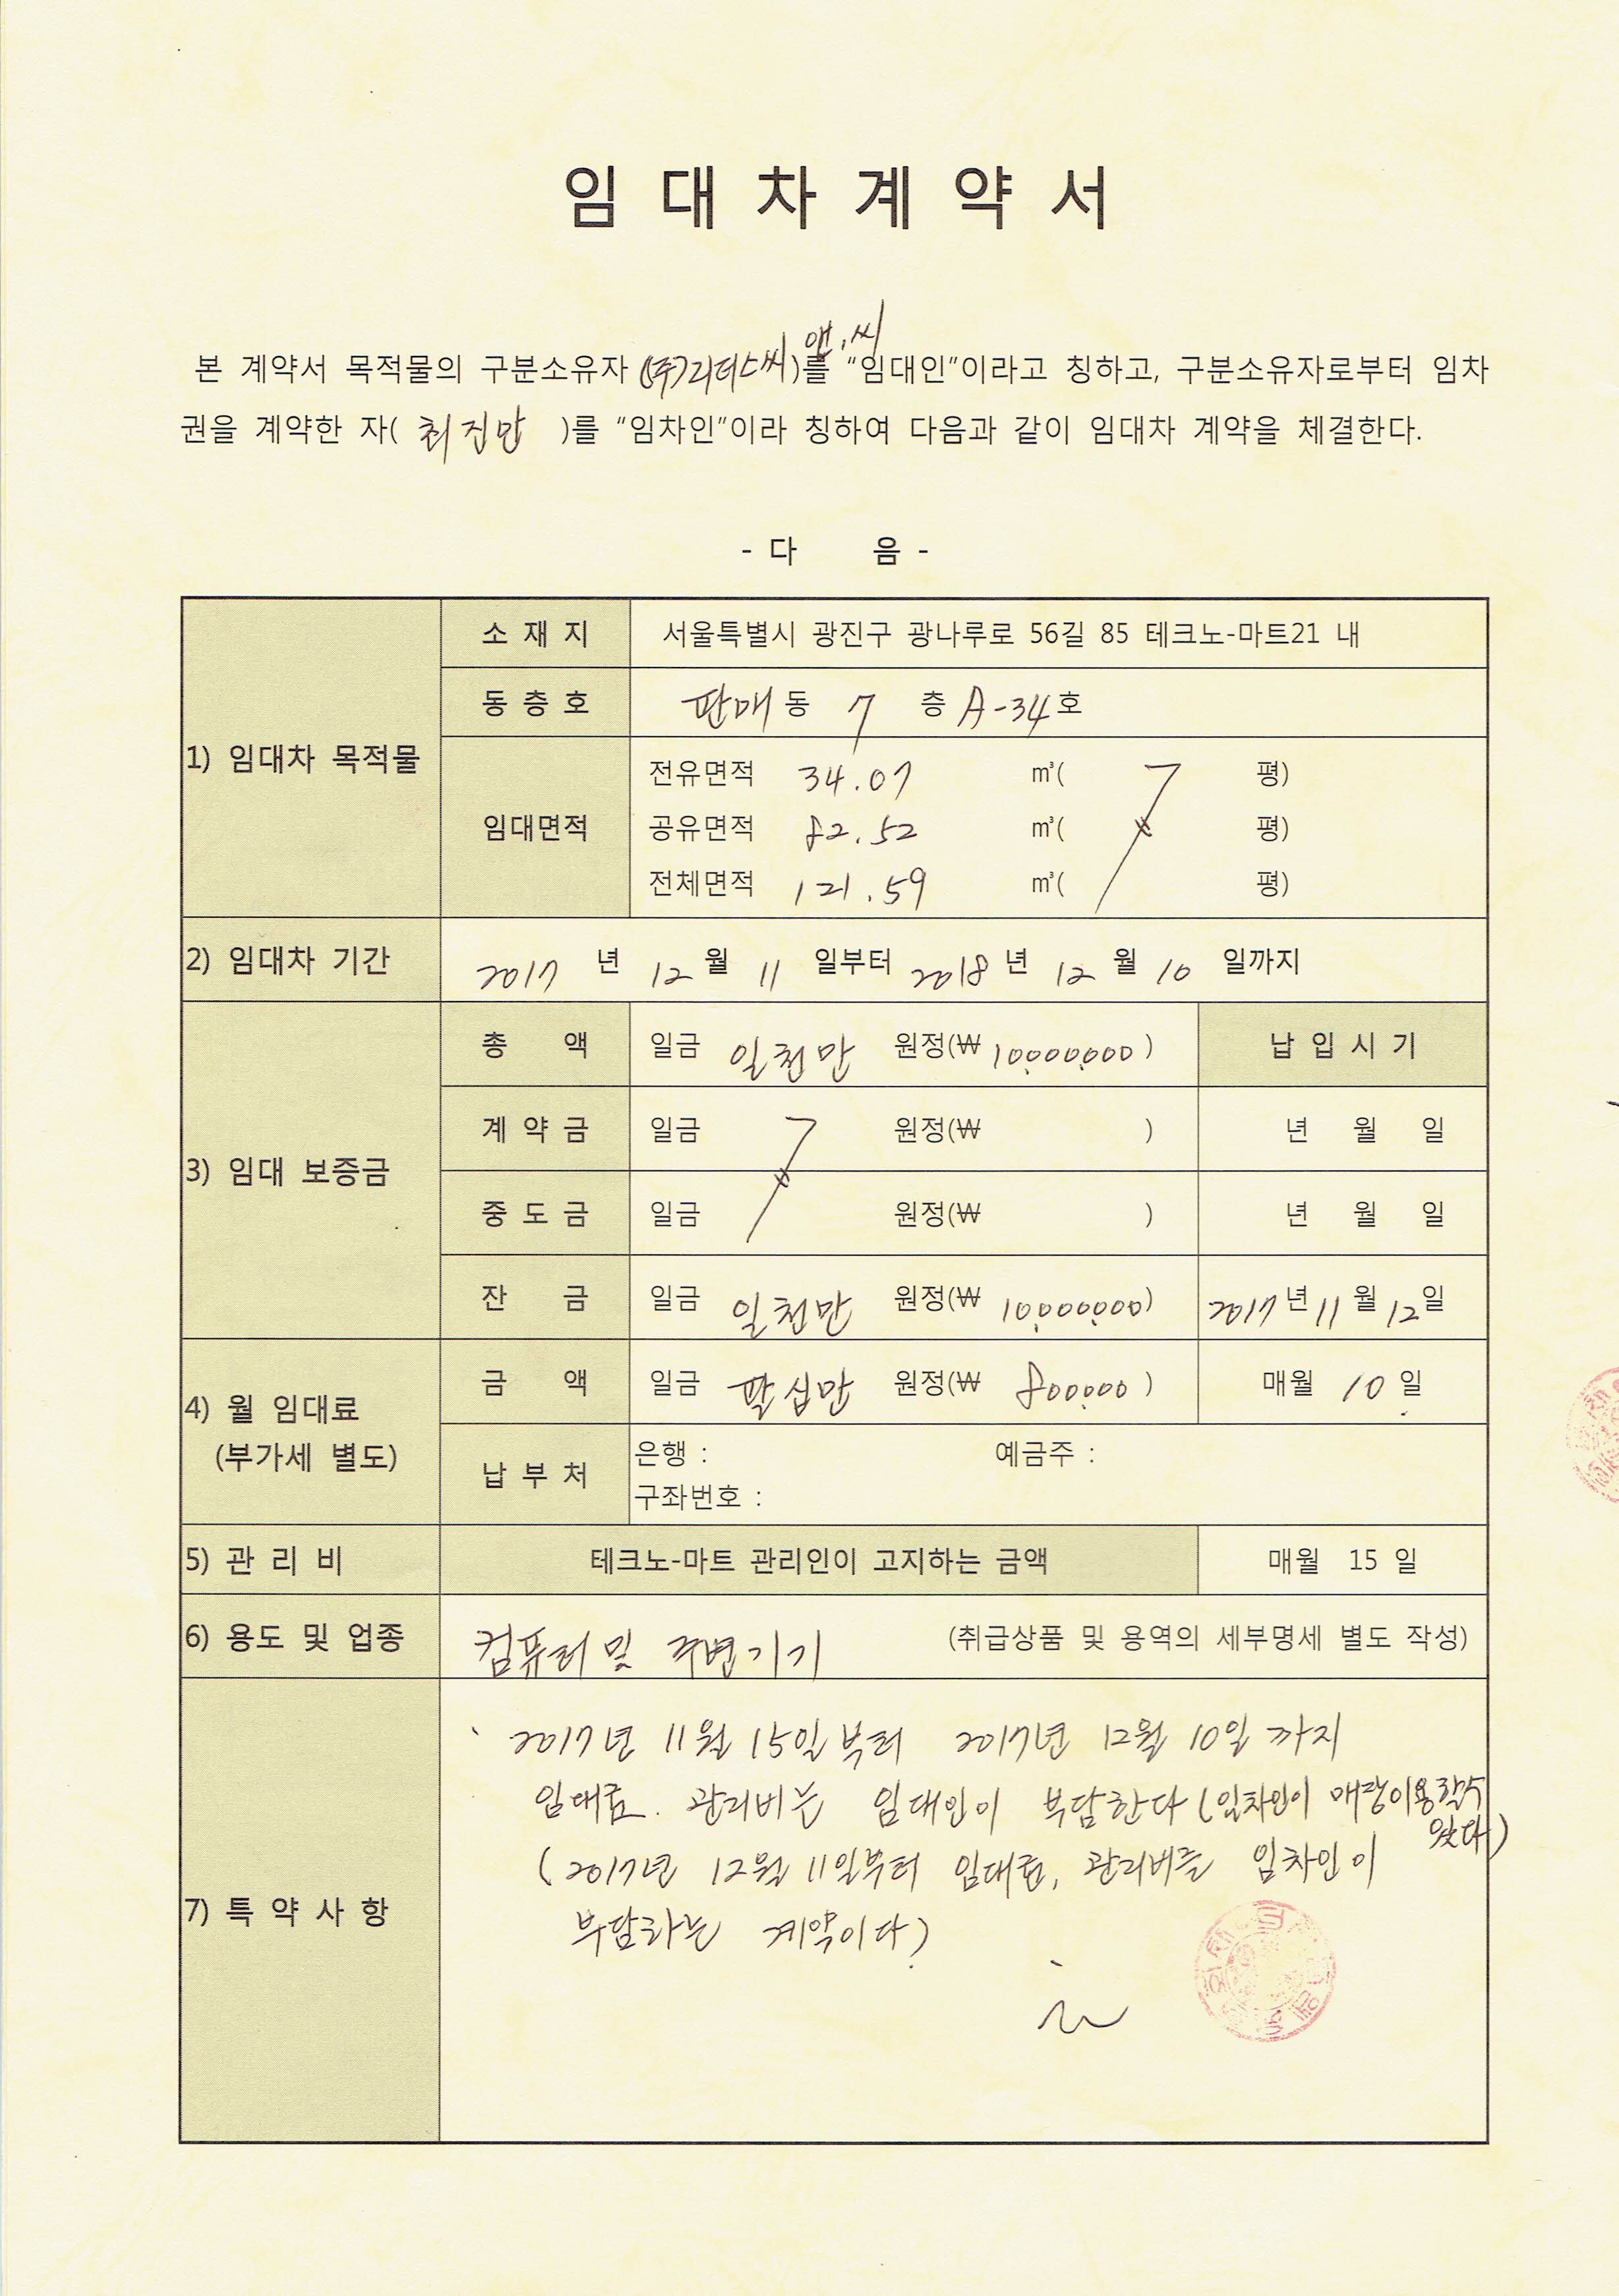 임 대 차 계 약 서
앤.씨
본 계약서 목적물의 구분소유자 ((주)리더스씨)를 “임대인”이라고 칭하고, 구분소유자로부터 임차
권을 계약한 자( 최진만 )를 “임차인”이라 칭하여 다음과 같이 임대차 계약을 체결한다.
- 다 음 -
1) 임대차 목적물
소 재 지 서울특별시 광진구 광나루로 56길 85 테크노-마트21 내
동 층 호 판매 동 7 층 A-34 호
임대면적
전유면적 34.07 ㎥( 평)
공유면적 82.52 ㎥( 평)
전체면적 121.59 ㎥( 평)
2) 임대차 기간 2017 년 12 월 11 일부터 2018 년 12 월 10 일까지
3) 임대 보증금
총 액 일금 일천만 원정(₩ 10,000,000 ) 납 입 시 기
계 약 금 일금 원정(₩ ) 년 월 일
중 도 금 일금 원정(₩ ) 년 월 일
잔 금 일금 일천만 원정(₩ 10,000,000) 2017 년 11 월 12 일
4) 월 임대료
(부가세 별도)
금 액 일금 팔십만 원정(₩ 800000 ) 매월 10 일
납 부 처
은행 : 예금주 :
구좌번호 :
5) 관 리 비 테크노-마트 관리인이 고지하는 금액 매월 15 일
6) 용도 및 업종 컴퓨터 및 주변기기 (취급상품 및 용역의 세부명세 별도 작성)
7) 특 약 사 항
2017년 11월 15일부터 2017년 12월 10일까지
임대료. 관리비는 임대인이 부담한다 (임차인이 매장이용할수
있다)
(2017년 12월 11일부터 임대료, 관리비를 임차인이
부담하는 계약이다)